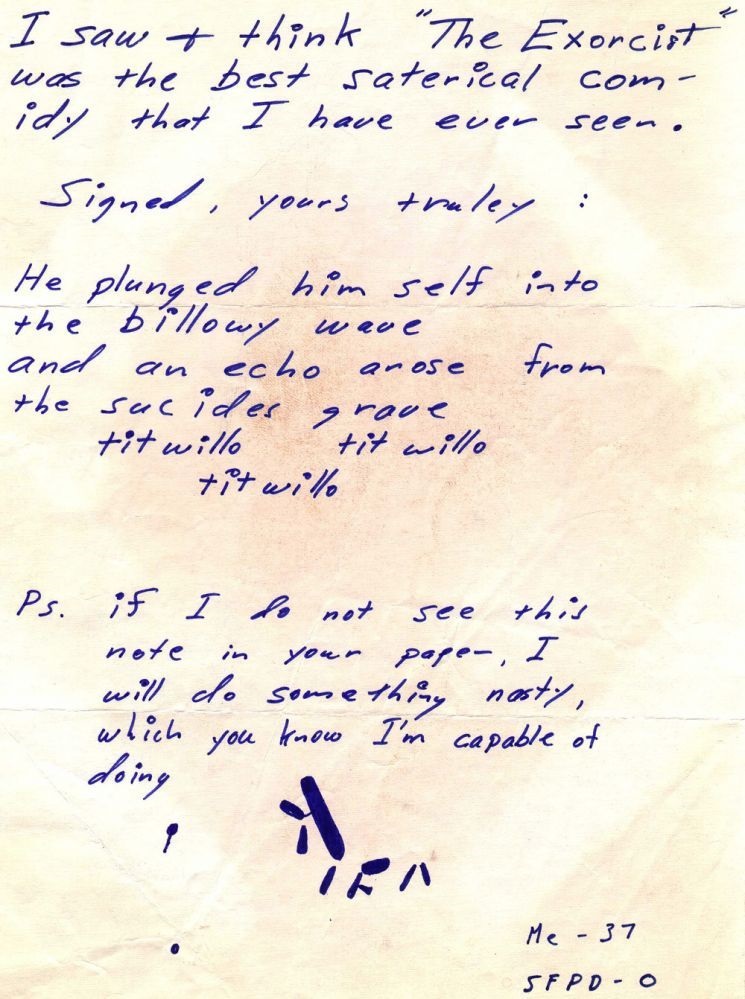 I saw + think "The Exorcist"
was the best saterical com-
idy that I have ever seen.
Signed, yours truley :
He plunged him self into
the billowy wave
and an echo arose from
the sucides grave
titwillo tit willo
tit willo
Ps. if I do not see this
note in your paper, I
will do something nasty,
which you know I'm capable of
doing
Me - 37
SFPD - 0